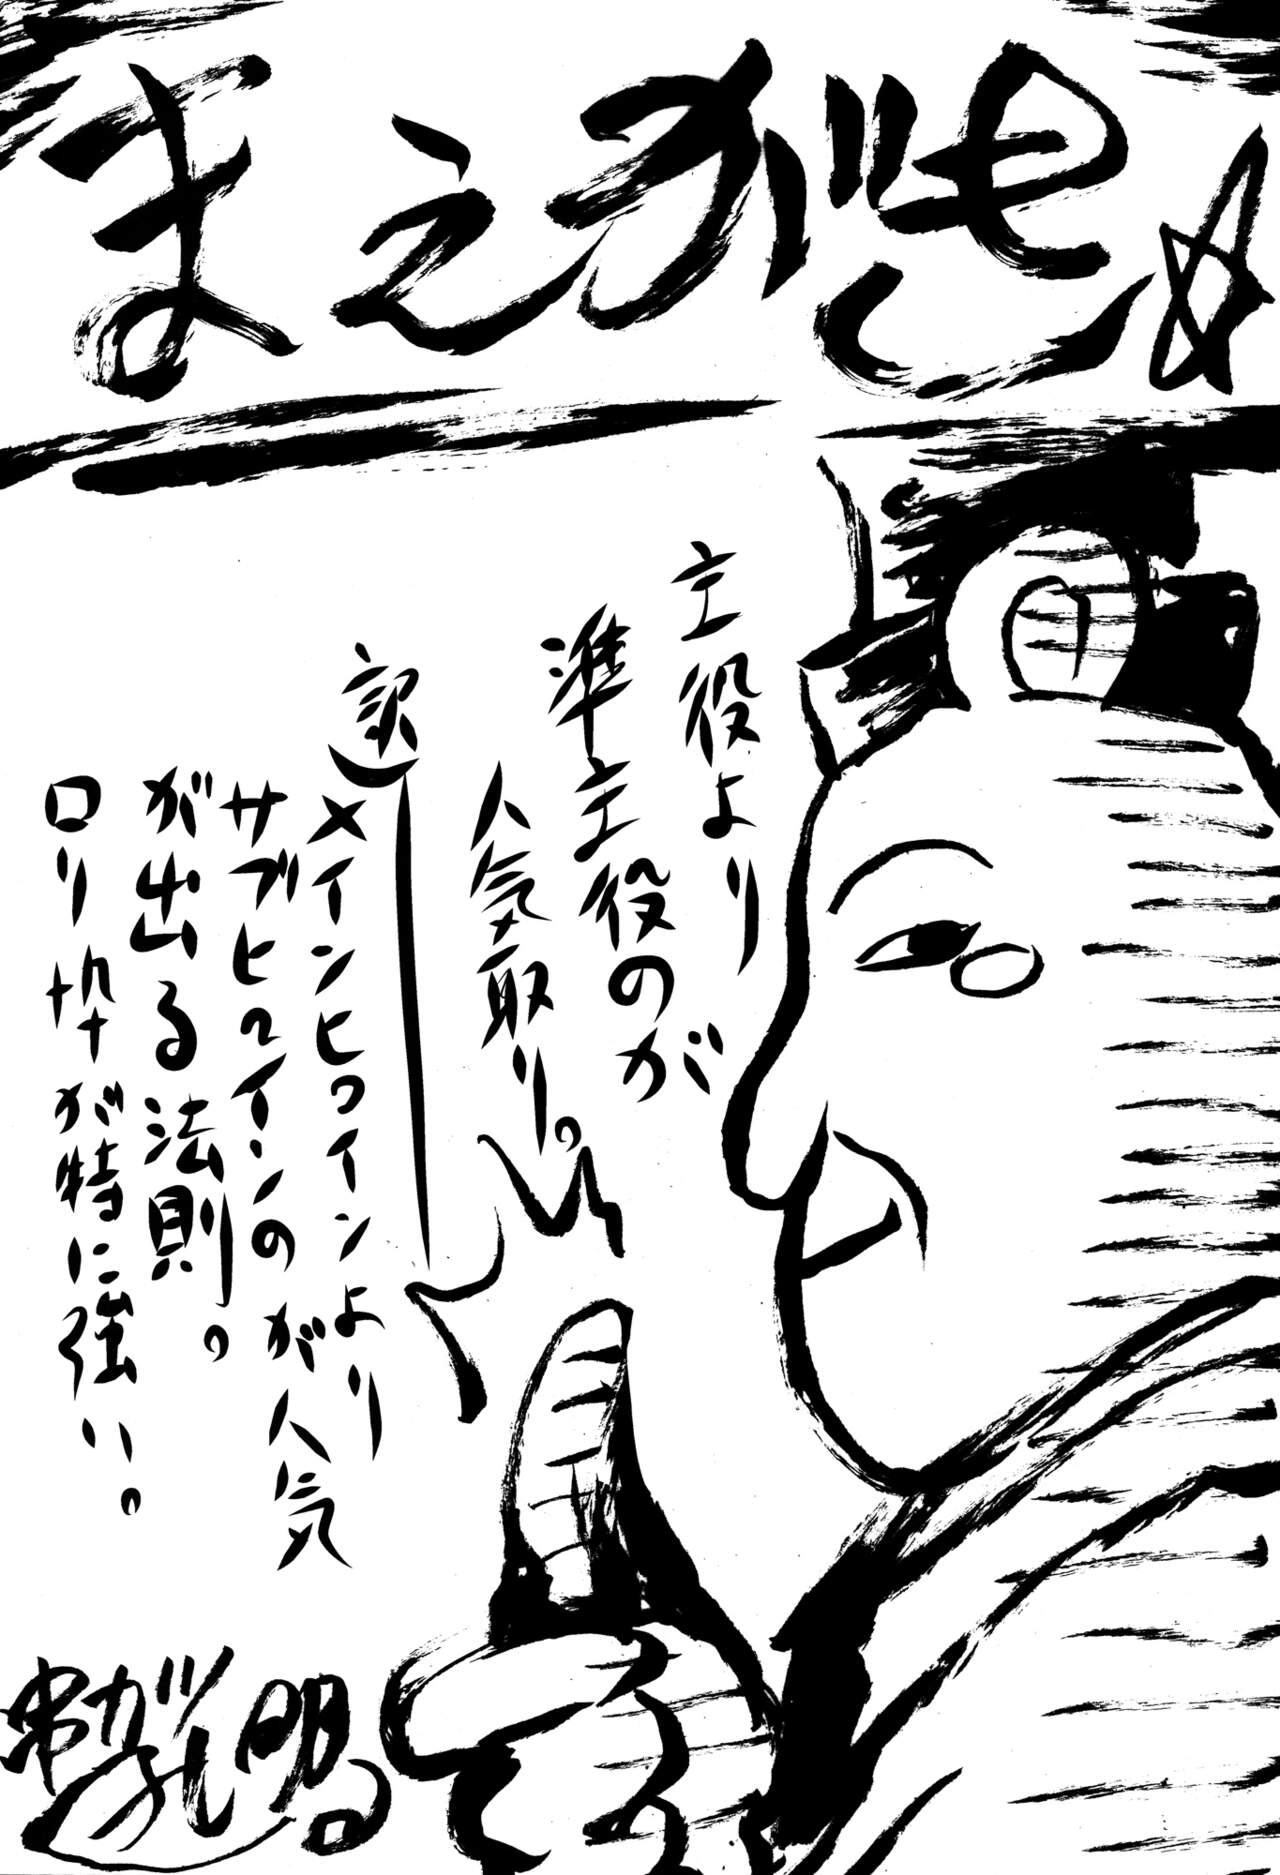 まえがき☆
主役より
準主役のが
人気取り。
訳
メインヒロインより
サブヒロインのが人気
が出る法則。
ロリ枠が特に強い。